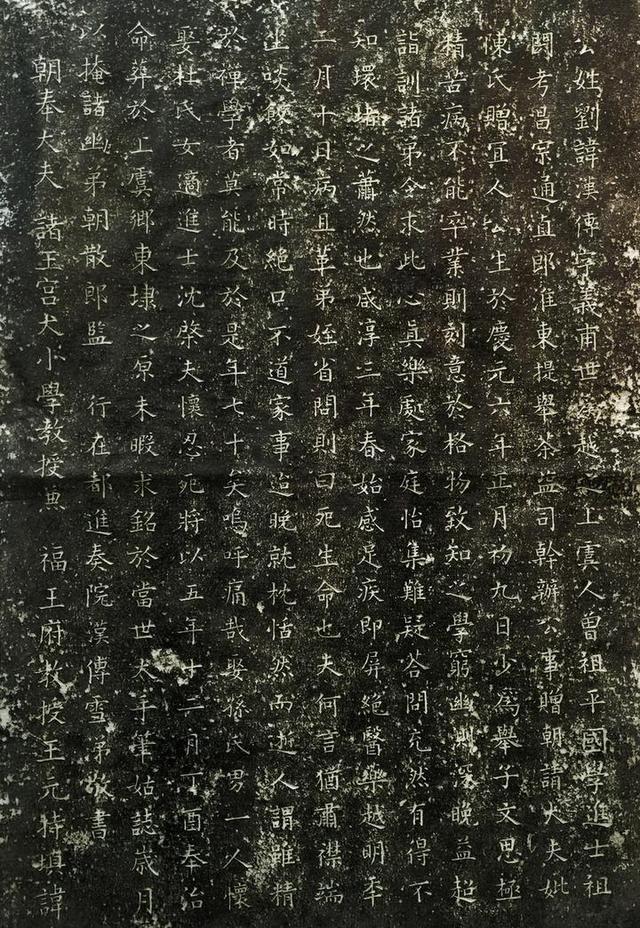 公姓劉諱漢傅字義甫世為越之上虞人曾祖平國學進士祖
聞考昌宗通直郎淮東提舉茶鹽司幹辦公事贈朝請大夫妣
陳氏贈宜人公生於慶元六年正月初九日少為舉子文思極
精苦病不能卒業則刻意於格物致知之學窮幽明深晚益超
詣訓諸弟令求此心真樂處家庭怡集難疑答問充然有得不
知環堵之蕭然也咸淳三年春始感足疾即屏絕醫藥越明年
二月十日病且革弟姪省問則曰死生命也夫何言猶肅襟端
坐啖飯如常時絕口不道家事迨晚就枕恬然而逝人謂雖精
於禪學者莫能及於是年七十矣嗚呼痛哉娶孫氏男一人懷
娶杜氏女適進士沈棨夫懷忍死將以五年十二月丁酉奉治
命葬於上虞鄉東埭之原未暇求銘於當世大手筆姑誌歲月
以掩諸幽弟朝散郎監　行在都進奏院漢傳雪涕敬書
朝奉大夫　諸王宮大小學教授兼　福王府教授王元特填諱